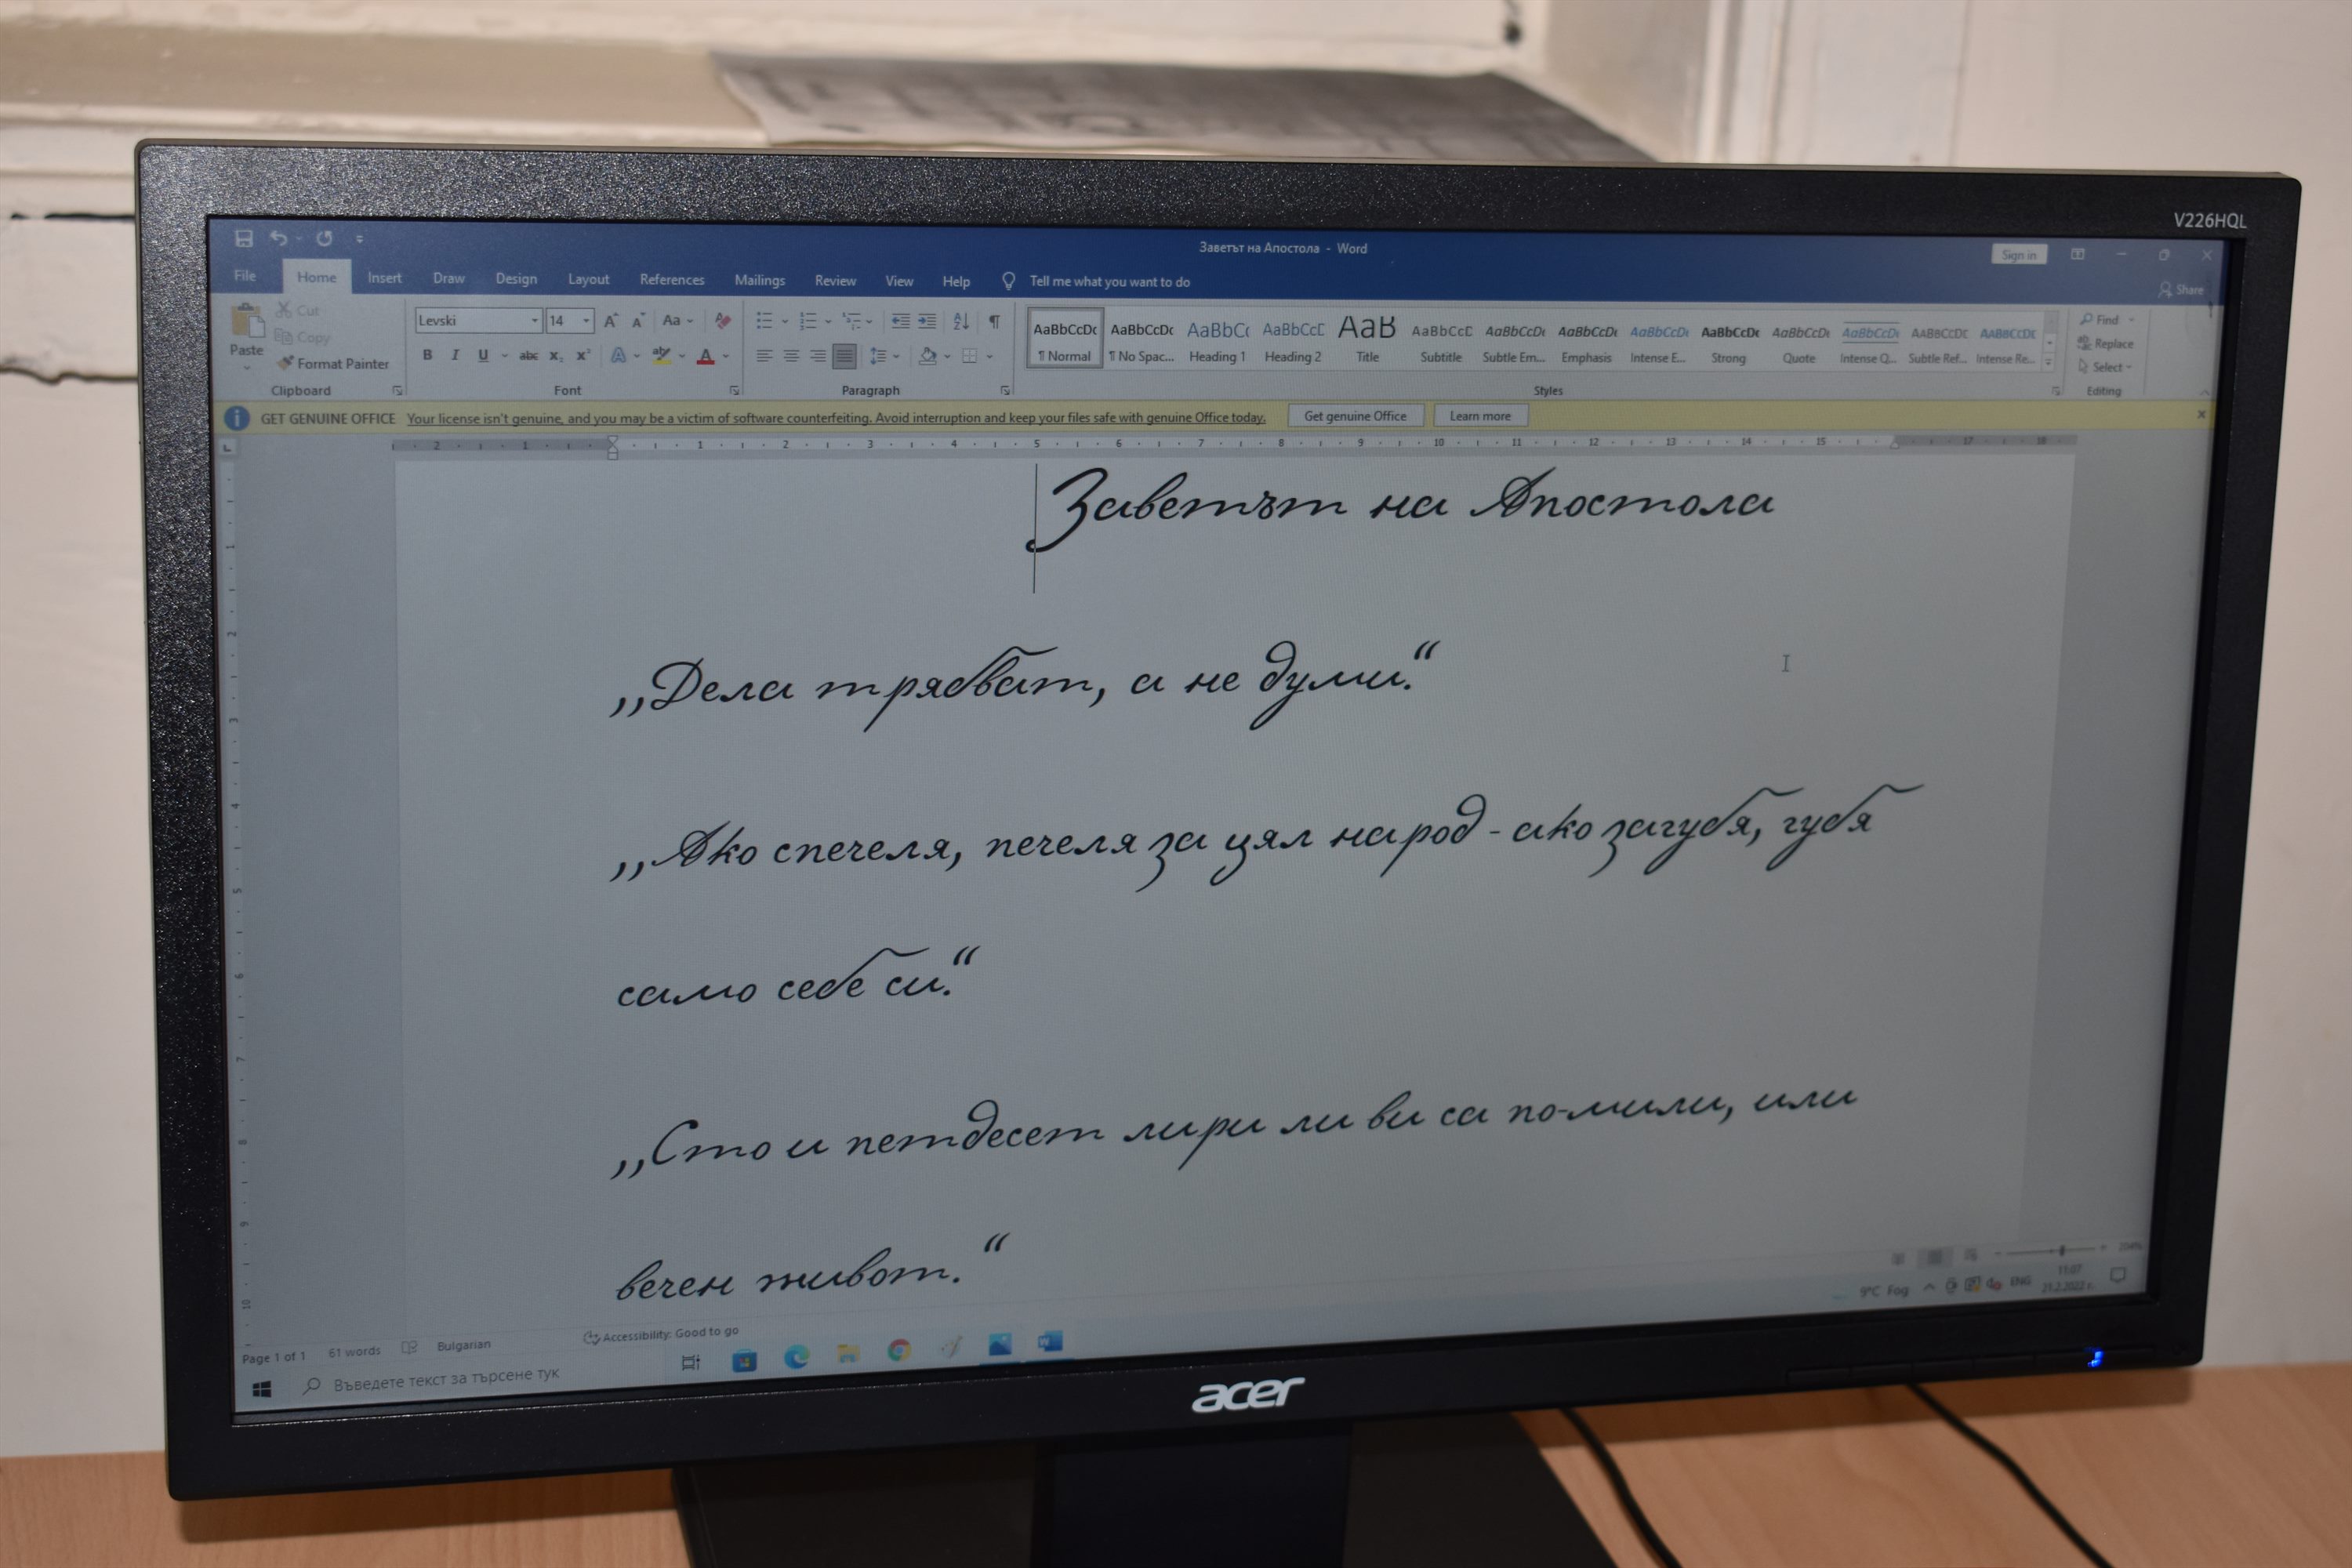 V226HQL
Заветът на Апостола - Word
Sign in
File Home Insert Draw Design Layout References Mailings Review View Help Tell me what you want to do
Share
Paste
Cut
Copy
Format Painter
Clipboard
Levski 14
Font
Paragraph
AaBbCcDc AaBbCcDc AaBbC( AaBbCcE AaB AaBbCcE AaBbCcDc AaBbCcDc AaBbCcDc AaBbCcDc AaBbCcDc AaBbCcDc AABBCCDE AABBCCDE
¶ Normal ¶ No Spac... Heading 1 Heading 2 Title Subtitle Subtle Em... Emphasis Intense E... Strong Quote Intense Q... Subtle Ref... Intense Re...
Styles
Find
Replace
Select
Editing
GET GENUINE OFFICE Your license isn't genuine, and you may be a victim of software counterfeiting. Avoid interruption and keep your files safe with genuine Office today. Get genuine Office Learn more
2 1 1 2 3 4 5 6 7 8 9 10 11 12 13 14 15 17 18
Заветът на Апостола
„Дела трябват, а не думи.“
„Ако спечеля, печеля за цял народ - ако загубя, губя
само себе си.“
„Сто и петдесет лири ли ви са по-мили, или
вечен живот.“
Page 1 of 1 61 words Bulgarian Accessibility: Good to go 204%
Въведете текст за търсене тук
9°C Fog ENG 11:07
21.2.2022 г.
acer